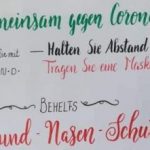 meinsam gegen Coron
ie mit — Halten Sie Abstand
N·D· — Tragen Sie eine Mask
BEHELFS
und - Nasen - Schu